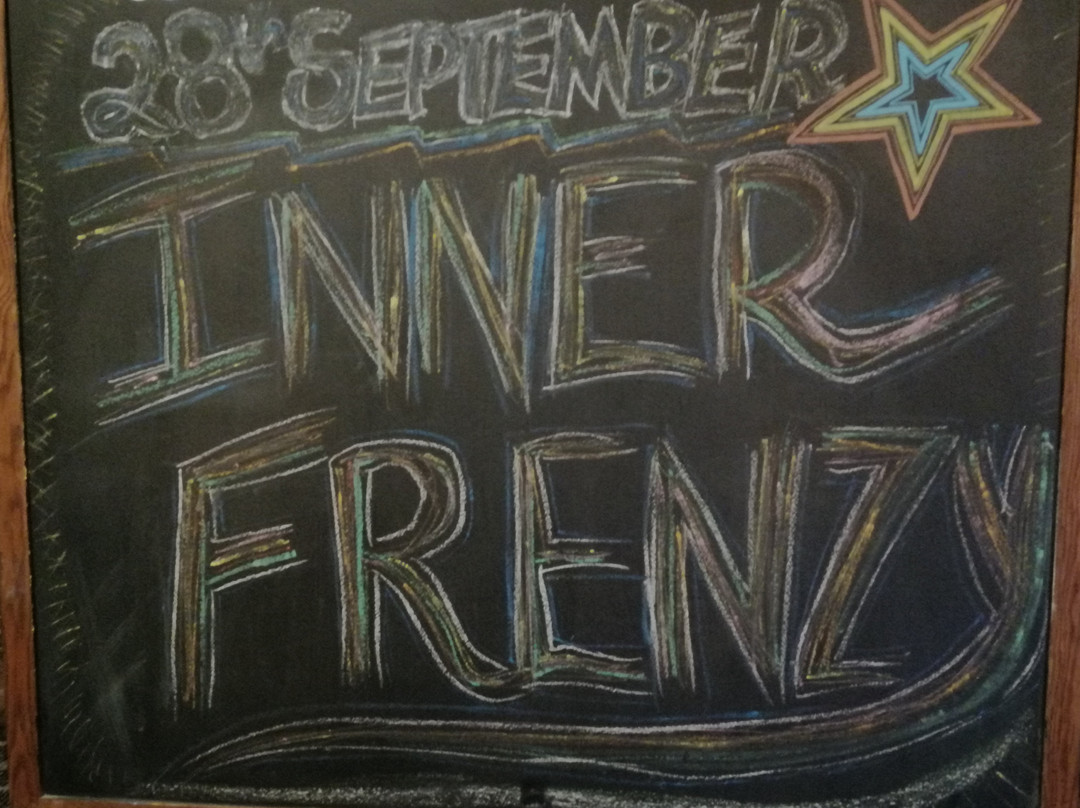 28th SEPTEMBER
INNER
FRENZY